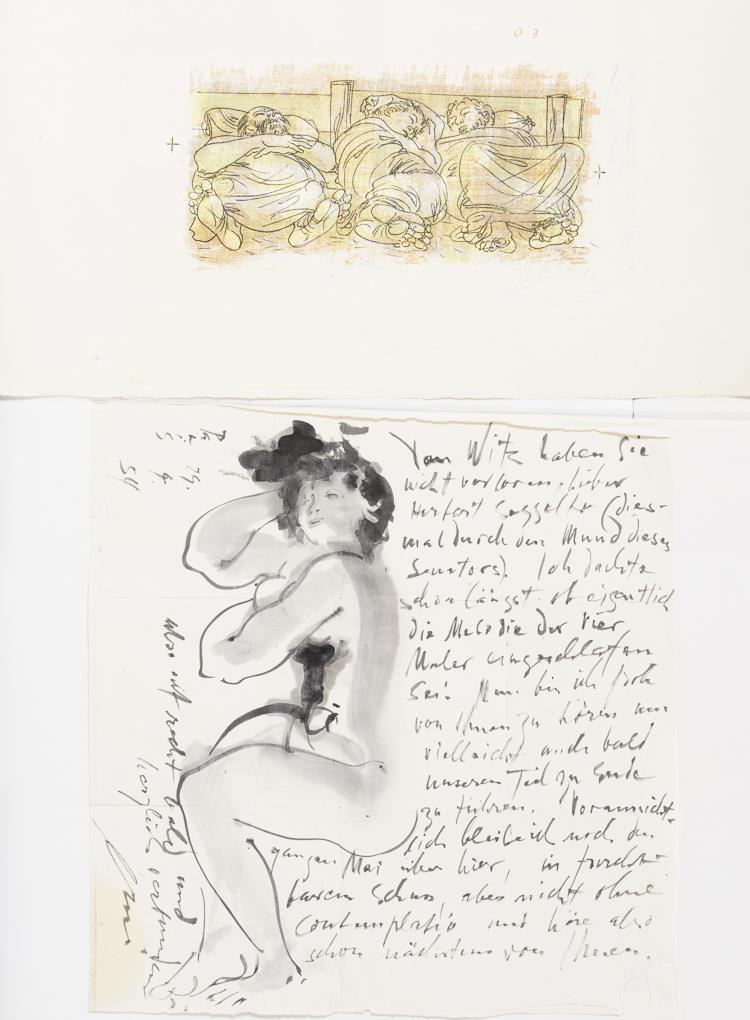 07
Paris
29.
4.
54
Vom Witz haben Sie
nicht verloren, lieber
Herbert Seggelke (dies-
mal durch den Mund dieses
Senators). Ich dachte
schon längst ob eigentlich
die Melodie der vier
Maler eingeschlafen
sei. Nun bin ich froh
von Ihnen zu hören und
vielleicht auch bald
unseren Teil zu Ende
zu führen. Voraussicht-
lich bleibe ich noch den
ganzen Mai über hier, in furcht-
barem Schuss, aber nicht ohne
Contemplatio und höre also
schon nächstens von Ihnen.
also auf recht bald und
herzlich